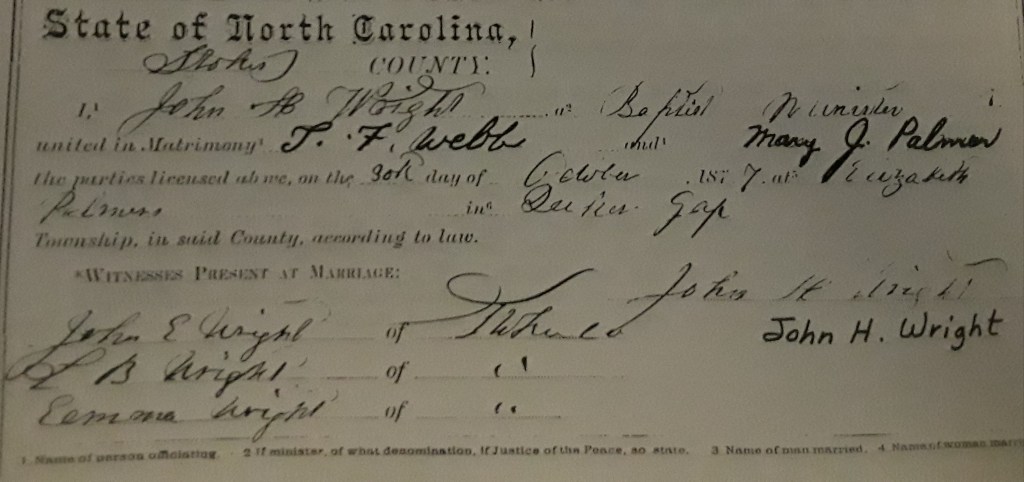 State of North Carolina,
Stokes COUNTY.
I, John H Wright a Baptist Minister
united in Matrimony T. F. Webb and Mary J. Palmer
the parties licensed above, on the 30th day of October 1877. at Elizabeth
Palmers in Quaker Gap
Township, in said County, according to law.
*WITNESSES PRESENT AT MARRIAGE:
John H Wright
John E Wright of Stokes Co John H. Wright
L B Wright of "
Eemma Wright of "
1 Name of person officiating. 2 If minister, of what denomination, if Justice of the Peace, so state. 3 Name of man married. 4 Name of woman marri